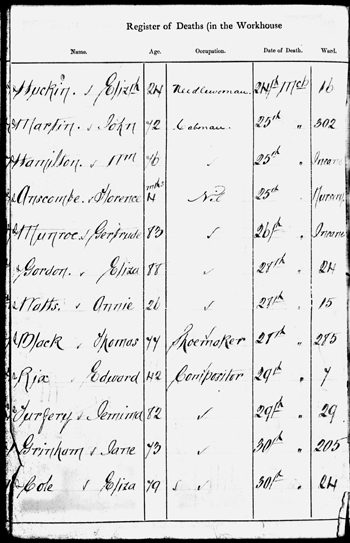 Register of Deaths (in the Workhouse
Name. Age. Occupation. Date of Death. Ward.
Huckin. s Elizth 24 Needlewoman. 24th Mch 16
Martin. s John 72 Cabman. 25th " 302
Hamilton. s Wm 76 s 25th " Insane
Anscombe. s Florence 4 mths Nil 25th "
Munroe. s Gertrude 83 s 26th " Insane
Gordon. s Eliza 88 s 27th " 24
Watts. s Annie 26 s 27th " 15
Black s Thomas 77 Shoemaker 27th " 285
Rix s Edward 42 Compositor 29th " 7
Turfery s Jemima 82 s 29th " 29
Grinham s Jane 73 s 30th " 205
Cole s Eliza 79 s s 30th " 24